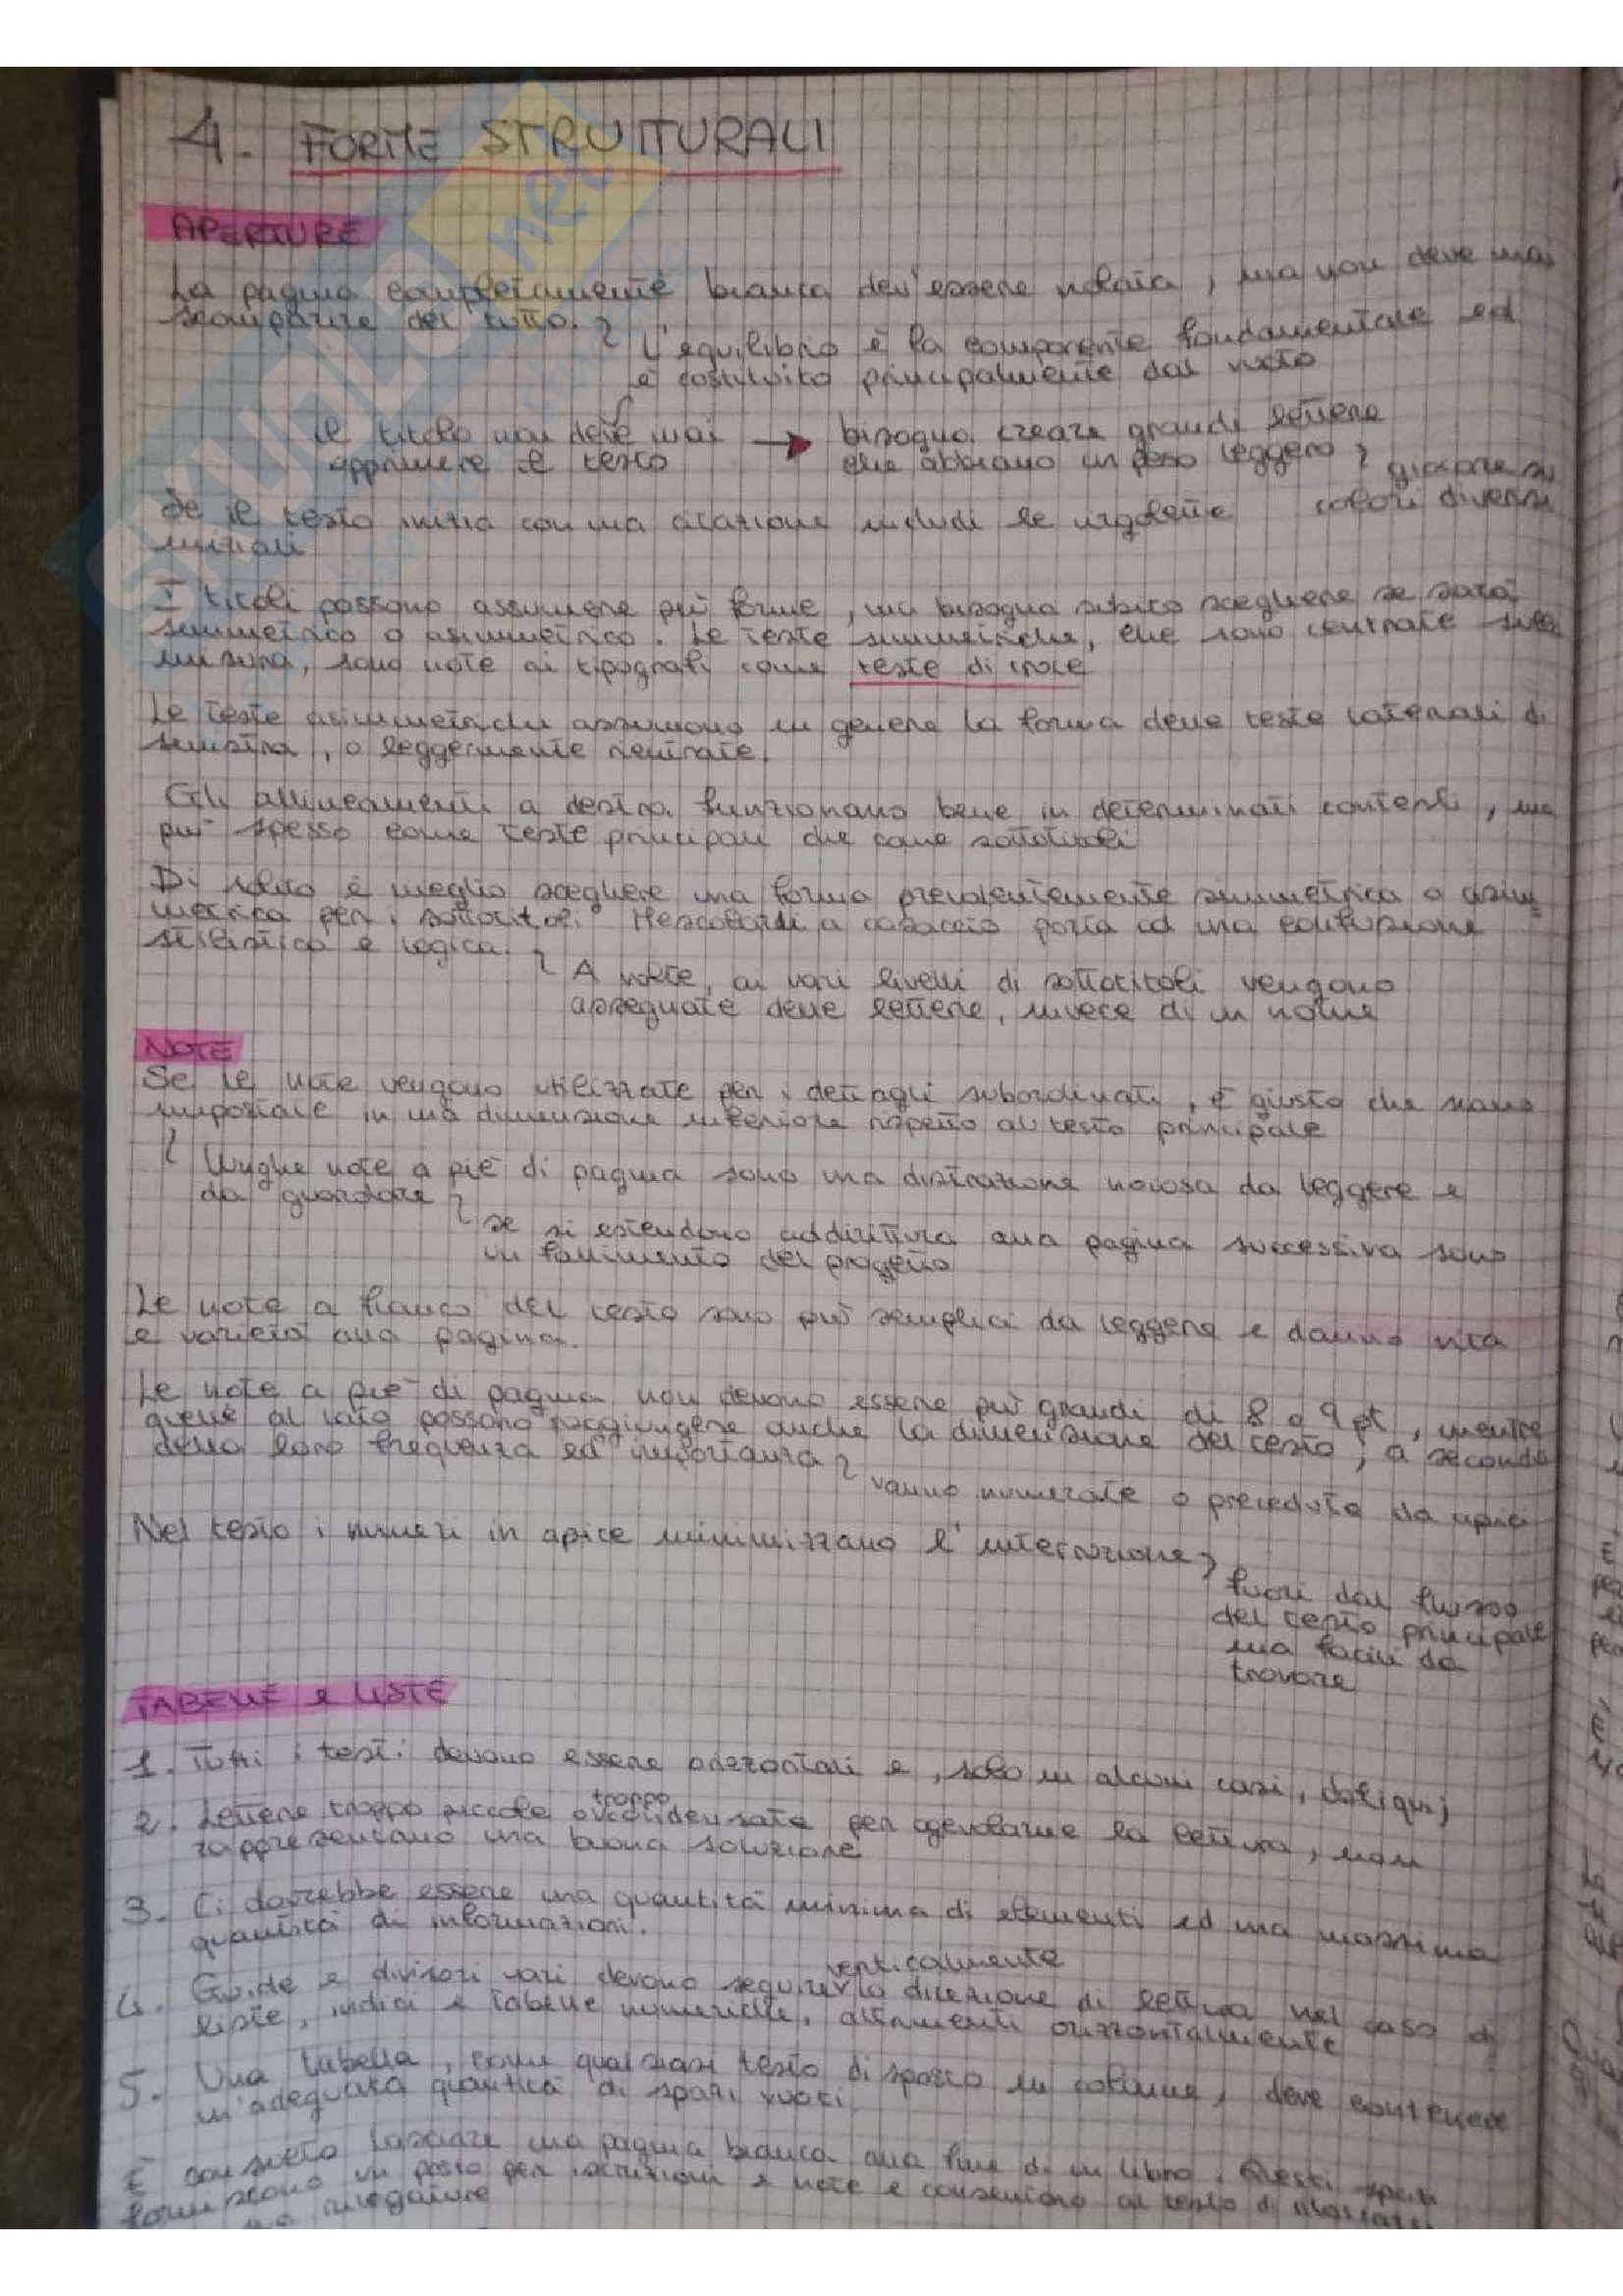 4. FORME STRUTTURALI
APERTURE
La pagina completamente bianca dev'essere violata, ma non deve mai
scomparire del tutto.
L'equilibrio è la componente fondamentale ed
è costituito principalmente dal vuoto
il titolo non deve mai → bisogna creare grandi lettere
opprimere il testo che abbiano un peso leggero
giocare su
colori diversi
Se il testo inizia con una citazione includi le virgolette
iniziali
I titoli possono assumere più forme, ma bisogna subito scegliere se sarà
simmetrico o asimmetrico. Le teste simmetriche, che sono centrate sulla
misura, sono note ai tipografi come teste di croce
Le teste asimmetriche assumono in genere la forma delle teste laterali di
sinistra, o leggermente rientrate.
Gli allineamenti a destra funzionano bene in determinati contesti, ma
più spesso come teste principali che come sottotitoli
Di solito è meglio scegliere una forma prevalentemente simmetrica o asim-
metrica per i sottotitoli. Mescolarli a casaccio porta ad una confusione
stilistica e logica.
A volte, ai vari livelli di sottotitoli vengono
assegnate delle lettere, invece di un nome
NOTE
Se le note vengono utilizzate per i dettagli subordinati, è giusto che siano
impostate in una dimensione inferiore rispetto al testo principale
Lunghe note a piè di pagina sono una distrazione noiosa da leggere e
da guardare
se si estendono addirittura alla pagina successiva sono
un fallimento del progetto
Le note a fianco del testo sono più semplici da leggere e danno vita
e varietà alla pagina.
Le note a piè di pagina non devono essere più grandi di 8 o 9 pt, mentre
quelle al lato possono raggiungere anche la dimensione del testo, a seconda
della loro frequenza ed importanza
vanno numerate o precedute da apici
Nel testo i numeri in apice minimizzano l'interruzione
fuori dal flusso
del testo principale
ma facili da
trovare
TABELLE e LISTE
1. Tutti i testi devono essere orizzontali e, solo in alcuni casi, obliqui;
troppo
2. Lettere troppo piccole o condensate per agevolarne la lettura, non
rappresentano una buona soluzione
3. Ci dovrebbe essere una quantità minima di elementi ed una massima
quantità di informazioni.
verticalmente
4. Guide e divisori vari devono seguire la direzione di lettura nel caso di
liste, indici e tabelle numeriche, altrimenti orizzontalmente
5. Una tabella, come qualsiasi testo disposto in colonne, deve contenere
un'adeguata quantità di spazi vuoti.
È consueto lasciare una pagina bianca alla fine di un libro. Questi spazi
forniscono un posto per iscrizioni e note e consentono al testo di